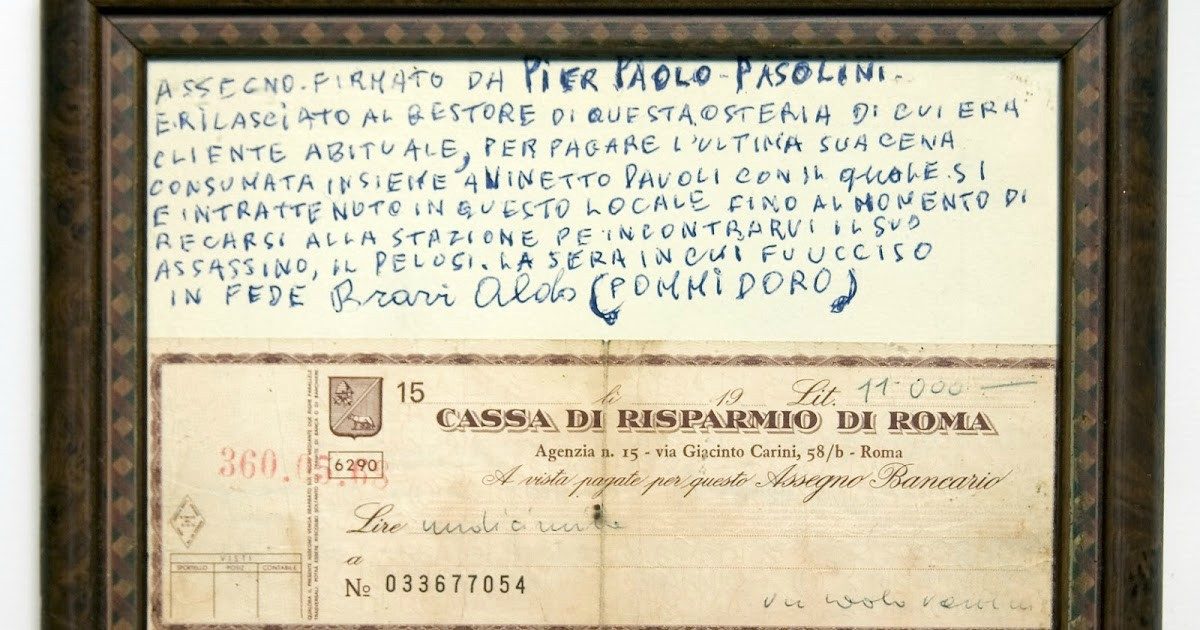 ASSEGNO. FIRMATO DA PIER PAOLO PASOLINI.
E RILASCIATO AL GESTORE DI QUESTA OSTERIA DI CUI ERA
CLIENTE ABITUALE, PER PAGARE L'ULTIMA SUA CENA
CONSUMATA INSIEME A NINETTO DAVOLI CON IL QUALE SI
E INTRATTENUTO IN QUESTO LOCALE FINO AL MOMENTO DI
RECARSI ALLA STAZIONE PE INCONTRARVI IL SUO
ASSASSINO, IL PELOSI. LA SERA IN CUI FU UCCISO
IN FEDE Bravi Aldo (POMMIDORO)
15 lì 19 Lit. 11.000
CASSA DI RISPARMIO DI ROMA
Agenzia n. 15 - via Giacinto Carini, 58/b - Roma
360. 6290
A vista pagate per questo Assegno Bancario
Lire undicimila
a
VISTI
SPORTELLO POSIZ CONTABILE
No 033677054